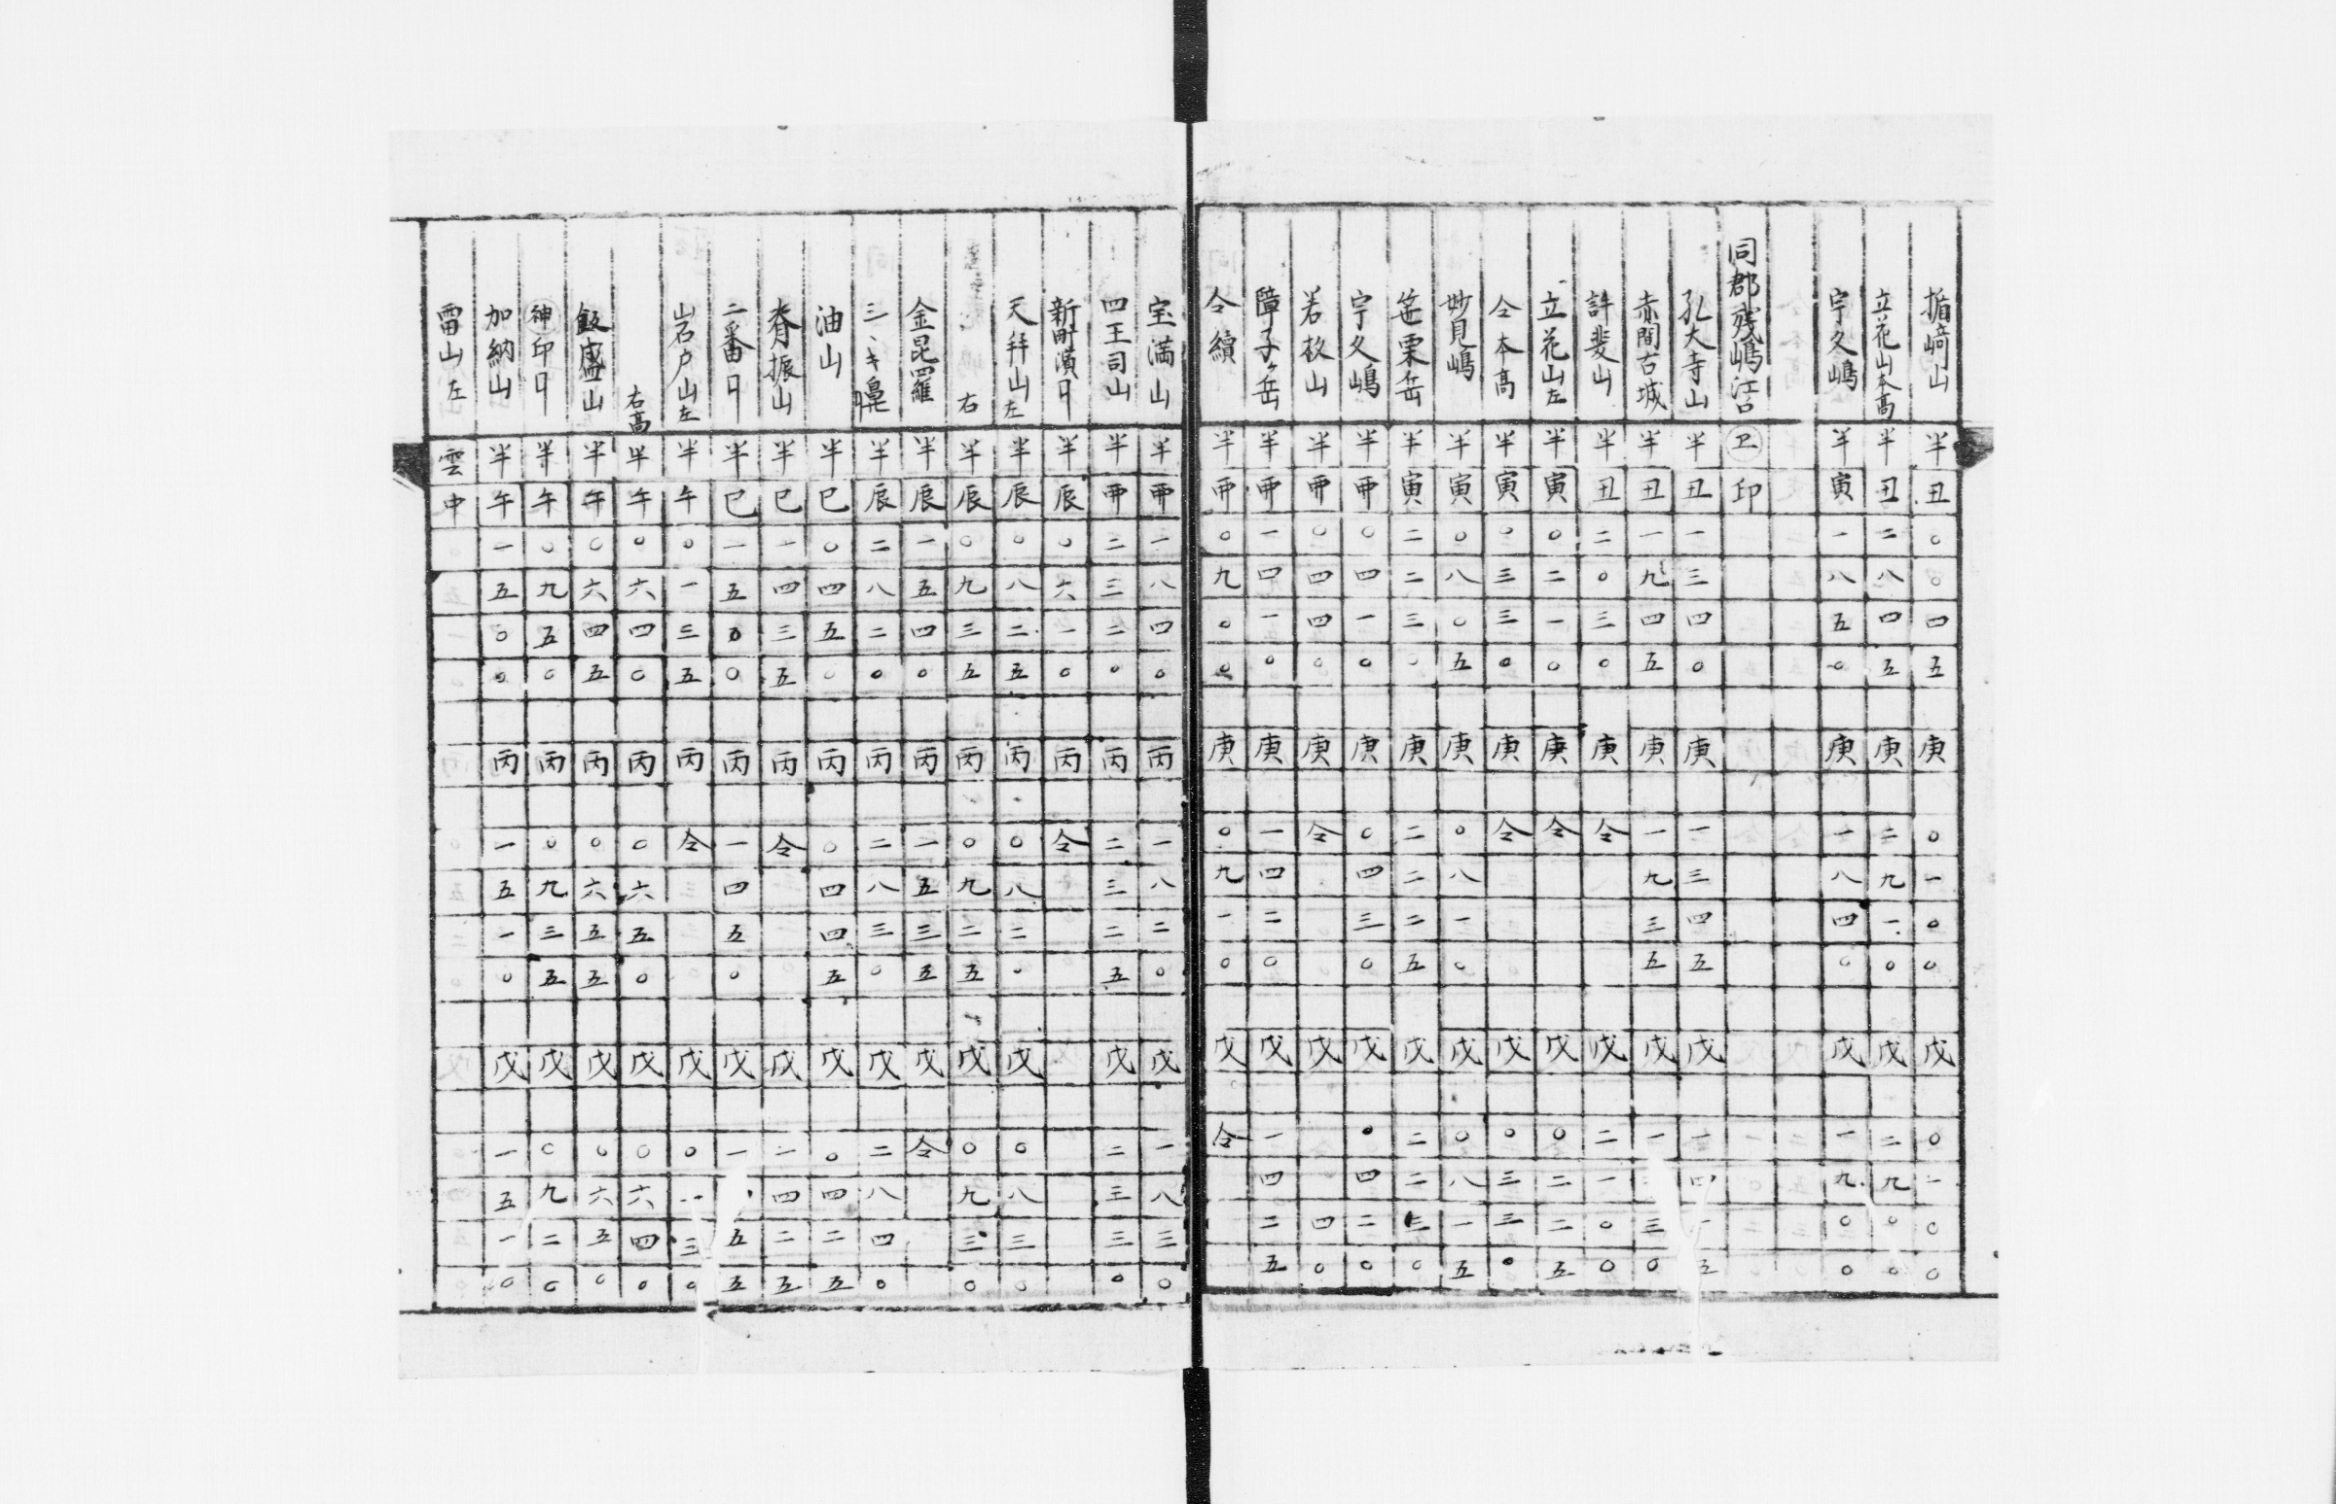 楯﨑山 半丑〇〇四五 庚 〇一〇〇 戊 〇一〇〇
立花山本高 半丑二八四五 庚 二九一〇 戊 二九〇〇
宇久嶋 半寅一八五〇 庚 一八四〇 戊 一九〇〇
同郡残嶋江口 卫印
孔大寺山 半丑一三四〇 庚 一三四五 戊 一四一五
赤間古城 半丑一九四五 庚 一九三五 戊 一 三〇
許斐山 半丑二〇三〇 庚 令 戊 二一〇〇
立花山左 半寅〇二一〇 庚 令 戊 〇二二五
仝本高 半寅〇三三〇 庚 令 戊 〇三三〇
妙見嶋 半寅〇八〇五 庚 〇八一〇 戊 〇八一五
笹栗岳 半寅二二三〇 庚 二二二五 戊 二二三〇
宇久嶋 半卯〇四一〇 庚 〇四三〇 戊 〇四二〇
若杦山 半卯〇四四〇 庚 令 戊 四〇
障子ヶ岳 半卯一四一〇 庚 一四二〇 戊 一四二五
仝續 半卯〇九〇〇 庚 〇九一〇 戊 令
宝満山 半卯一八四〇 丙 一八二〇 戊 一八三〇
四王司山 半卯二三二〇 丙 二三二五 戊 二三三〇
新町濱印 半辰〇六一〇 丙 令
天拜山左 半辰〇八二五 丙 〇八二〇 戊 〇八三〇
右 半辰〇九三五 丙 〇九二五 戊 〇九三〇
金昆羅 半辰一五四〇 丙 一五三五 戊 令
三ヽキ鼻 半辰二八二〇 丙 二八三〇 戊 二八四〇
油山 半巳〇四五〇 丙 〇四四五 戊 〇四二五
脊振山 半巳一四三五 丙 令 戊 一四二五
二番印 半巳一五〇〇 丙 一四五〇 戊 一 五五
岩戸山左 半午〇一三五 丙 令 戊 〇一三〇
右高 半午〇六四〇 丙 〇六五〇 戊 〇六四〇
飯盛山 半午〇六四五 丙 〇六五五 戊 〇六五〇
神印印 半午〇九五〇 丙 〇九三五 戊 〇九二〇
加納山 半午一五〇〇 丙 一五一〇 戊 一五一〇
雷山左 雲中